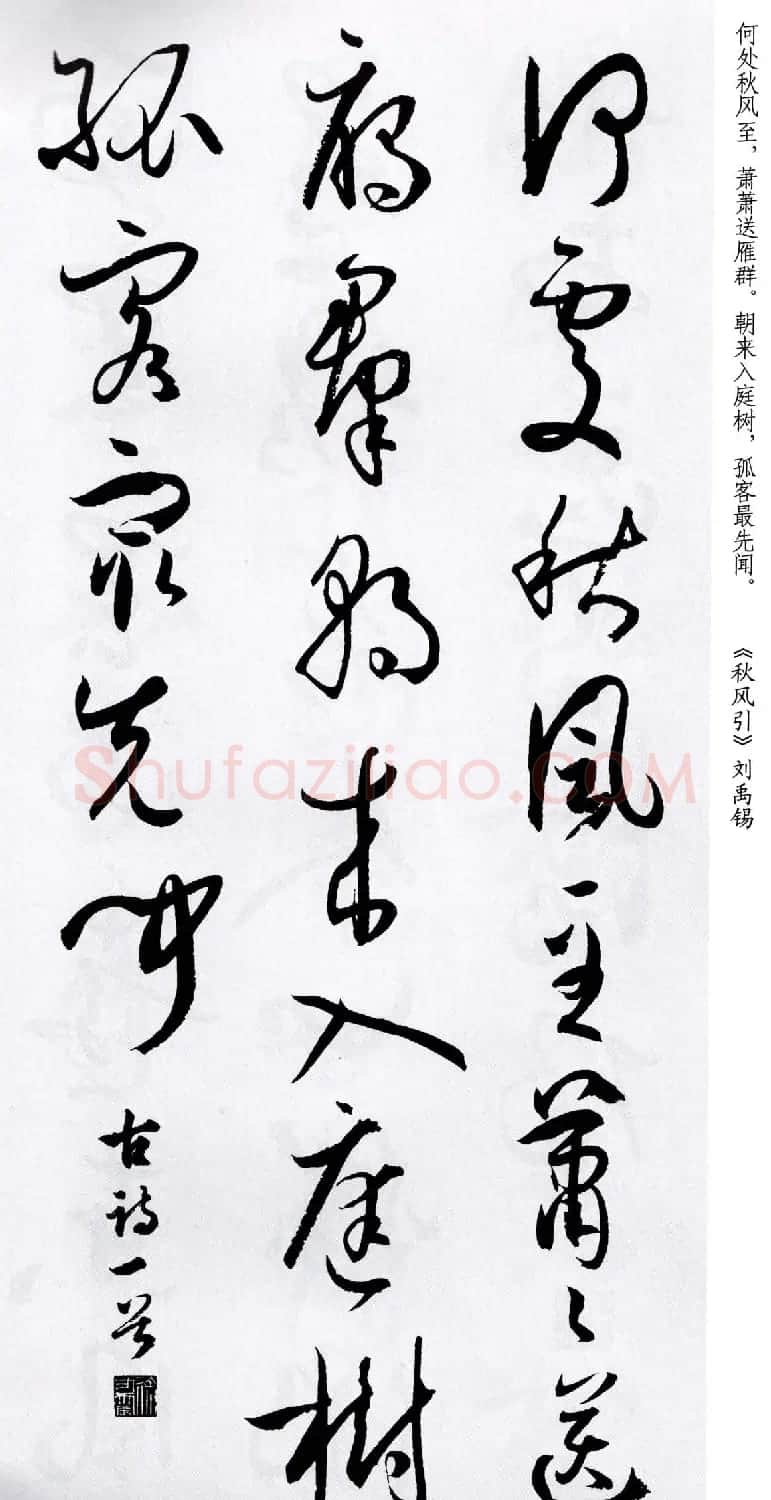 何处秋风至，萧萧送雁群。朝来入庭树，孤客最先闻。
《秋风引》刘禹锡
何處秋風至蕭々送
雁羣朝来入庭樹
孤客最先聞
古詩一首
Shufaziliao.COM